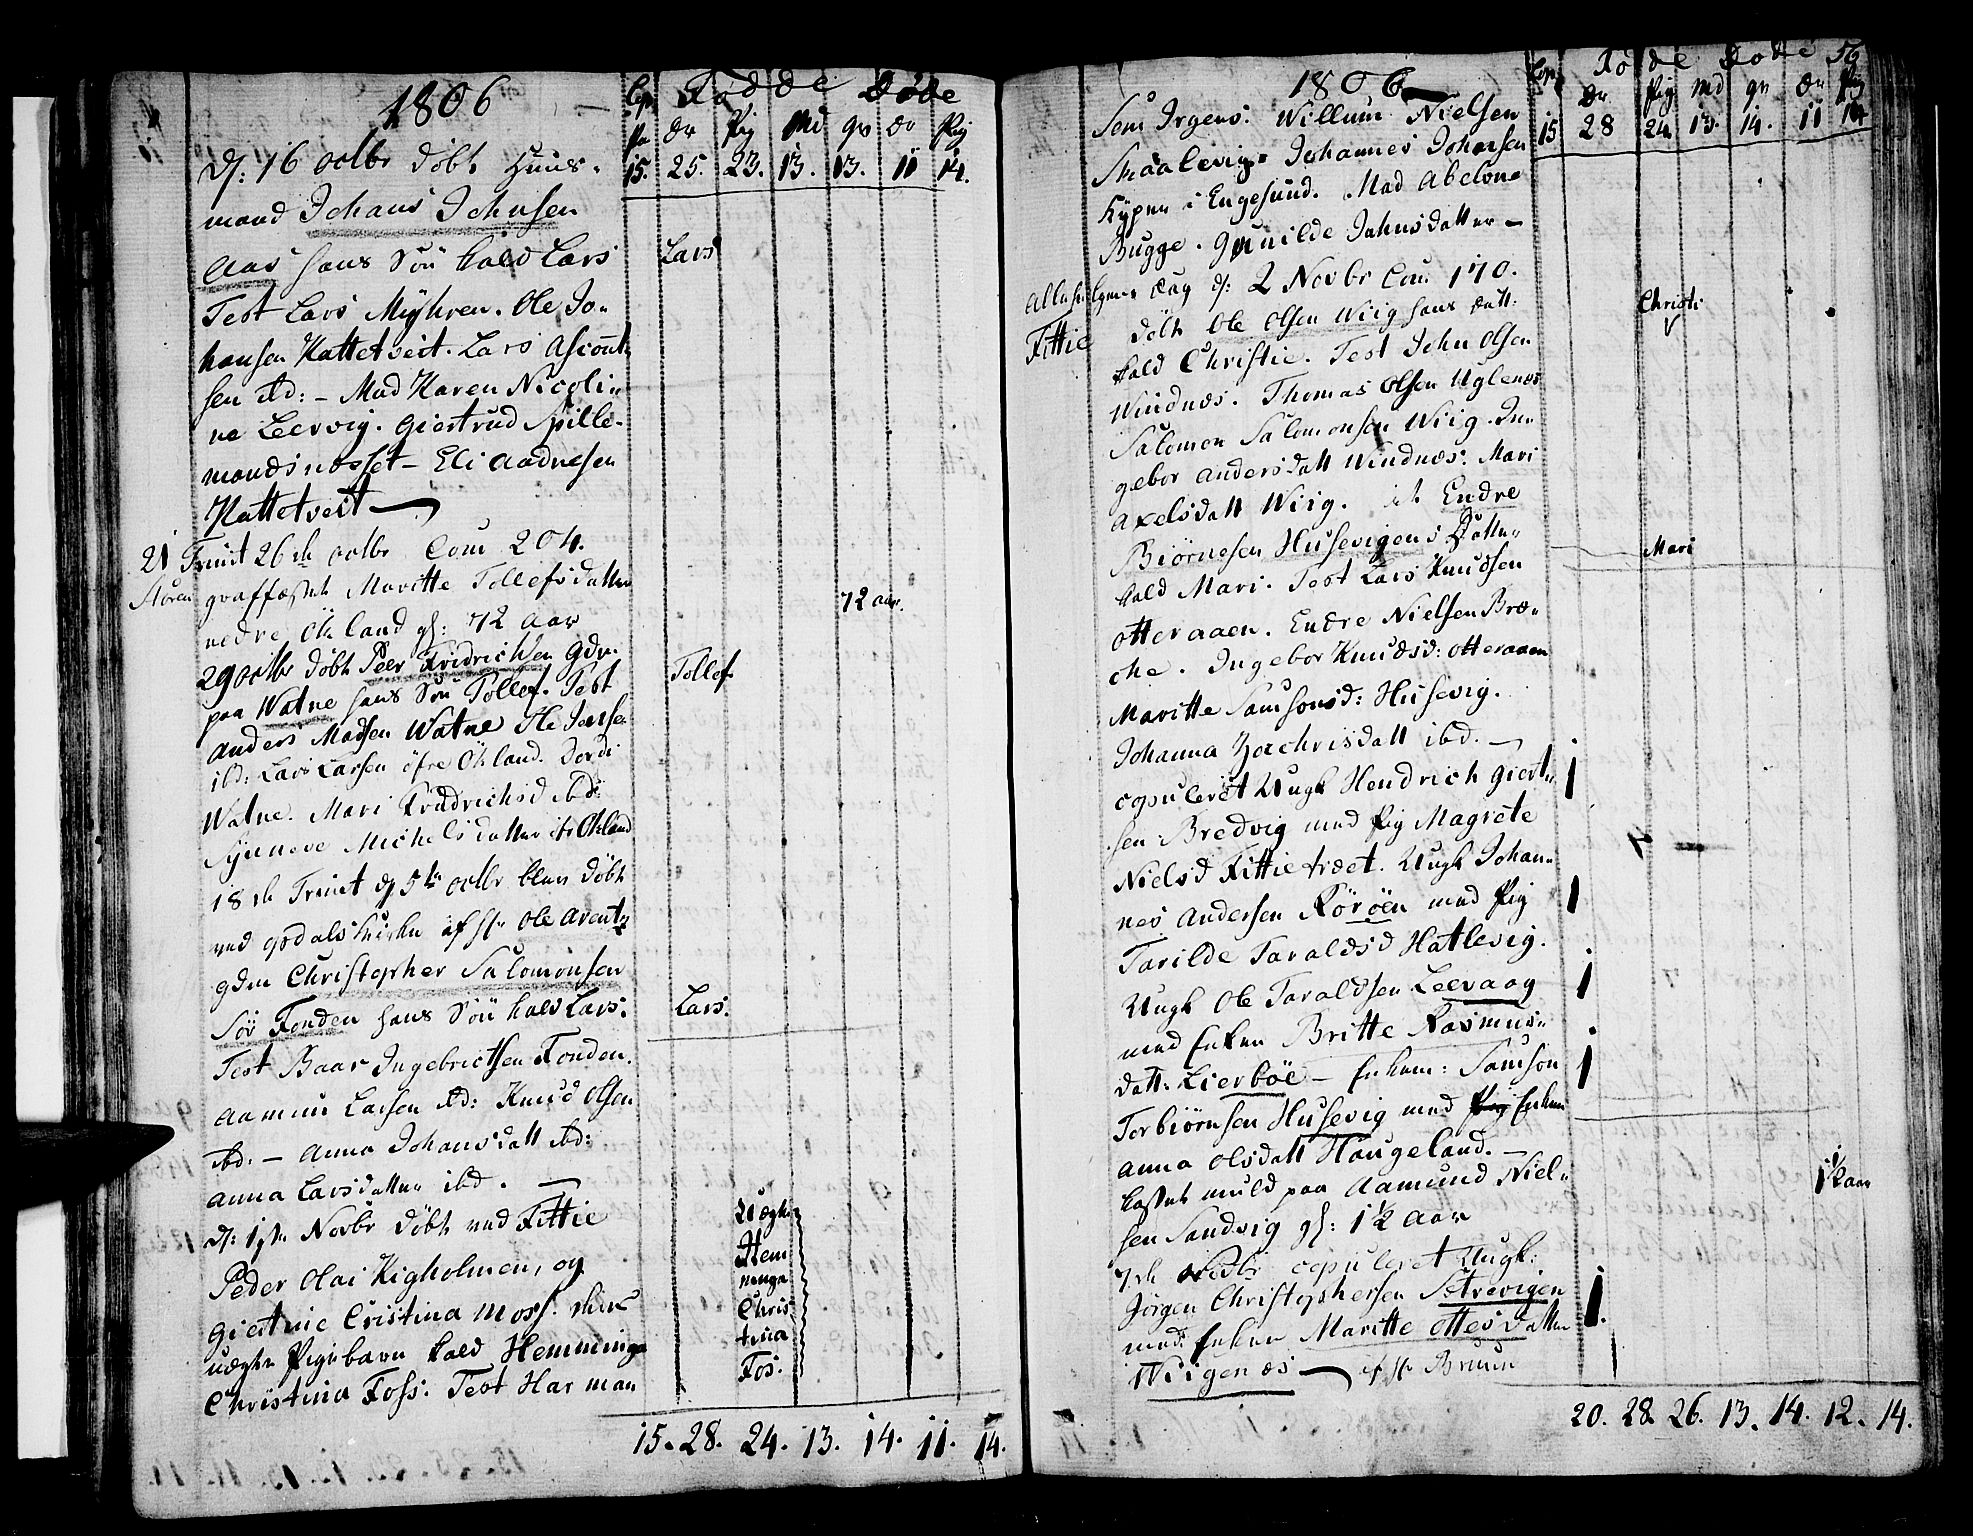 1806
Cop Fødde Døde
Pr Dr Pig Md qv Dr Pig
15. 25. 23. 13. 13. 11 14.
d: 16 octbr Döbt Huus-
mand Johans Johnsen
Aas hans Sön kald Lars
Lars
Test Lars Myhren. Ole Jo-
hansen Kattetveit. Lars Ascout
sen ibd: - Mad Karen Nicoli-
ne Leervig. Giertrud Spille-
mandsnesset - Eli Aadnesen
Kattetveit
21 Trinit 26de octbr Com 204.
Stören graffæstet Maritte Tollefsdatter
72 aar.
nedre Ökland gl: 72 Aar
29 octbr Döbt Peer Fridrichsen gdm
Tollef
paa Watne hans Sön Tollef. Test
Anders Madsen Watne Ole Jensen
ibd: Lars Larsen öfre Ökland. Dordi
Watne. Mari Fridrichsd ibd:
Synneve Michelsdatter Ökland
18de Trinit d 5te octbr blev Döbt
ved Opdals Kirke af Hr Ole Arentz
gdm Christopher Salomonsen
Sör Fonden hans Sön kald Lars:
Lars.
Test Baar Ingebrictsen Fonden.
Aamun Larsen ibd: Knud Olsen
ibd: - Anna Johansdatt ibd:
Anna Larsdatter ibd.
d: 1ste Novbr Döbt ved Fittie
Peder Olai Kigholmen, og
Giertrue Cristina Moss. deres
uægte Pigebarn kald Hemminga
Christina Foss. Test Harman
Uægte
Hem
minga
Chris
tina
Fos.
15. 28. 24. 13. 14. 11. 14.
1806
Cop Fødde Døde 56
Dr Pig Md qv Dr Pig
15 28 24 13. 14. 11 14
Sem Irgens. Willum Nielsen
Smaalevig. Johannes Johansen
Kyper i Engesund. Mad Abelone
Bugge. Gunilde Jahnsdatter -
Allehelgens Dag d: 2 Novbr Com 170.
Fittie Döbt Ole Olsen Wiig hans Datt:
Christi
kald Christie. Test John Olsen
Windnæs. Thomas Olsen Uglenæs
Salomon Salomonsen Wiig. In-
gebor Andersdatt Windnæs. Mari
Axelsdatt Wiig. it Endre
Biörnesen Husevigens Datter
Mari
kald Mari. Test Lars Knudsen
Otteraaen. Endre Nielsen Bræ-
cke. Ingebor Knudsd: Otteraaen
Maritte Samsonsd: Husevig.
Johanna Zachrisdatt ibd. -
copuleret Ungk Hendrich Giert-
sen Bredvig med Pig Magrete
Nielsd Fittie trædet. Ungk Johan-
nes Andersen Röröen med Pig
Tarilde Taraldsd Hatlevig.
Ungk Ole Taraldsen Leevaag
med Enken Britte Rasmus-
datt: Lierböe - Enkem: Samson
Torbiörnsen Husevig med Pig Enken
Anna Olsdatt Haugeland. -
kastet muld paa Aamund Niel-
1½ aar
sen Sandvig gl: 1½ Aar
7de Novbr copuleret Ungk:
Jörgen Christophersen Setrevigen
med Enken Maritte Ottesdatter
Wiigenæs - af Hr Bruun
20. 28. 26. 13. 14. 12. 14.